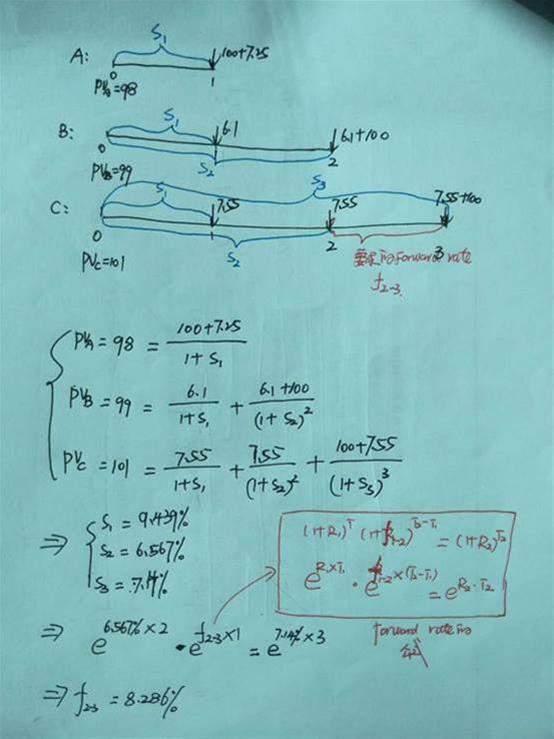 A: S₁ 100+7.25
0 1
PVA=98
B: S₁ 6.1 6.1+100
0 S₂ 2
PVB=99
S₃
C: S₁ 7.55 7.55 7.55+100
0 S₂ 2 3
PVC=101 forward rate
f₂₋₃
PVA = 98 = (100+7.25)/(1+S₁)
PVB = 99 = 6.1/(1+S₁) + (6.1+100)/(1+S₂)²
PVC = 101 = 7.55/(1+S₁) + 7.55/(1+S₂)² + (100+7.55)/(1+S₃)³
⇒ S₁ = 9.439%
S₂ = 6.567%
S₃ = 7.14%
(1+R₁)^T₁ (1+R₁₋₂)^(T₂-T₁) = (1+R₂)^T₂
e^(R₁×T₁) · e^(R₁₋₂×(T₂-T₁)) = e^(R₂·T₂)
forward rate的
⇒ e^(6.567%×2) · e^(f₂₋₃×1) = e^(7.14%×3)
⇒ f₂₋₃ = 8.286%